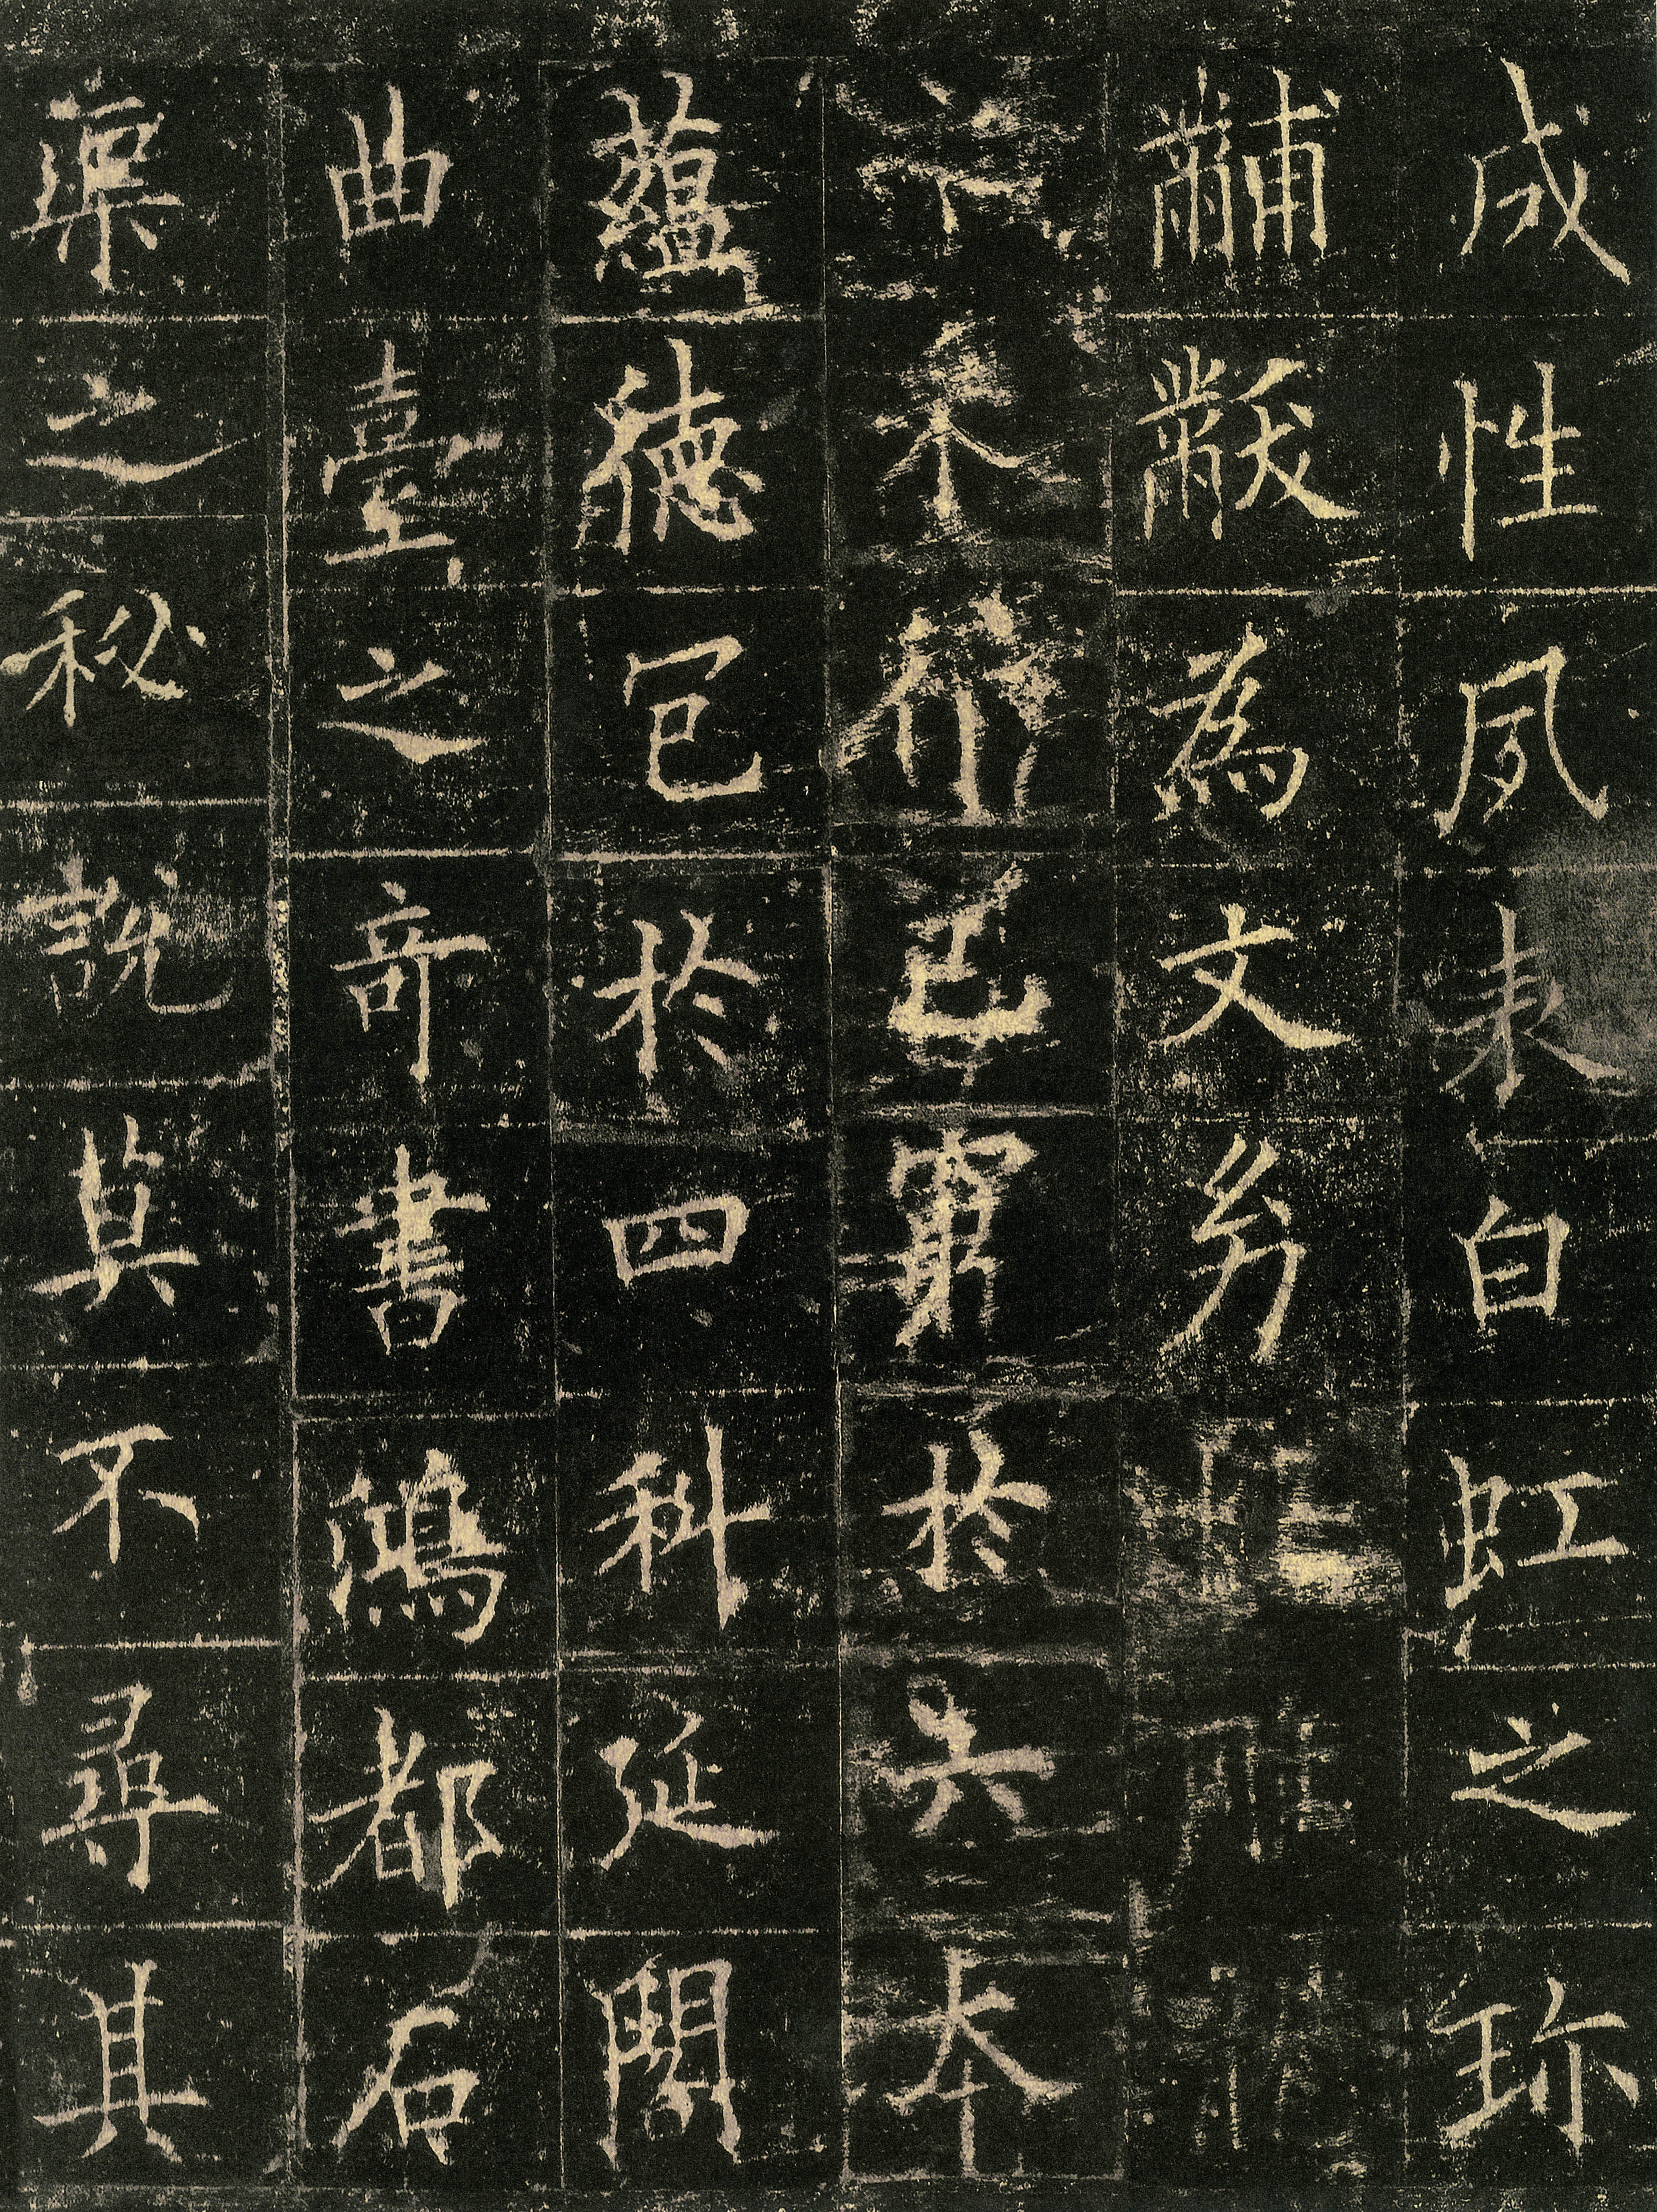 成性夙表白虹之珍
黼黻為文幼
窮於六本
蘊德包於四科延閣
曲臺之奇書鴻都石
渠之秘說莫不尋其